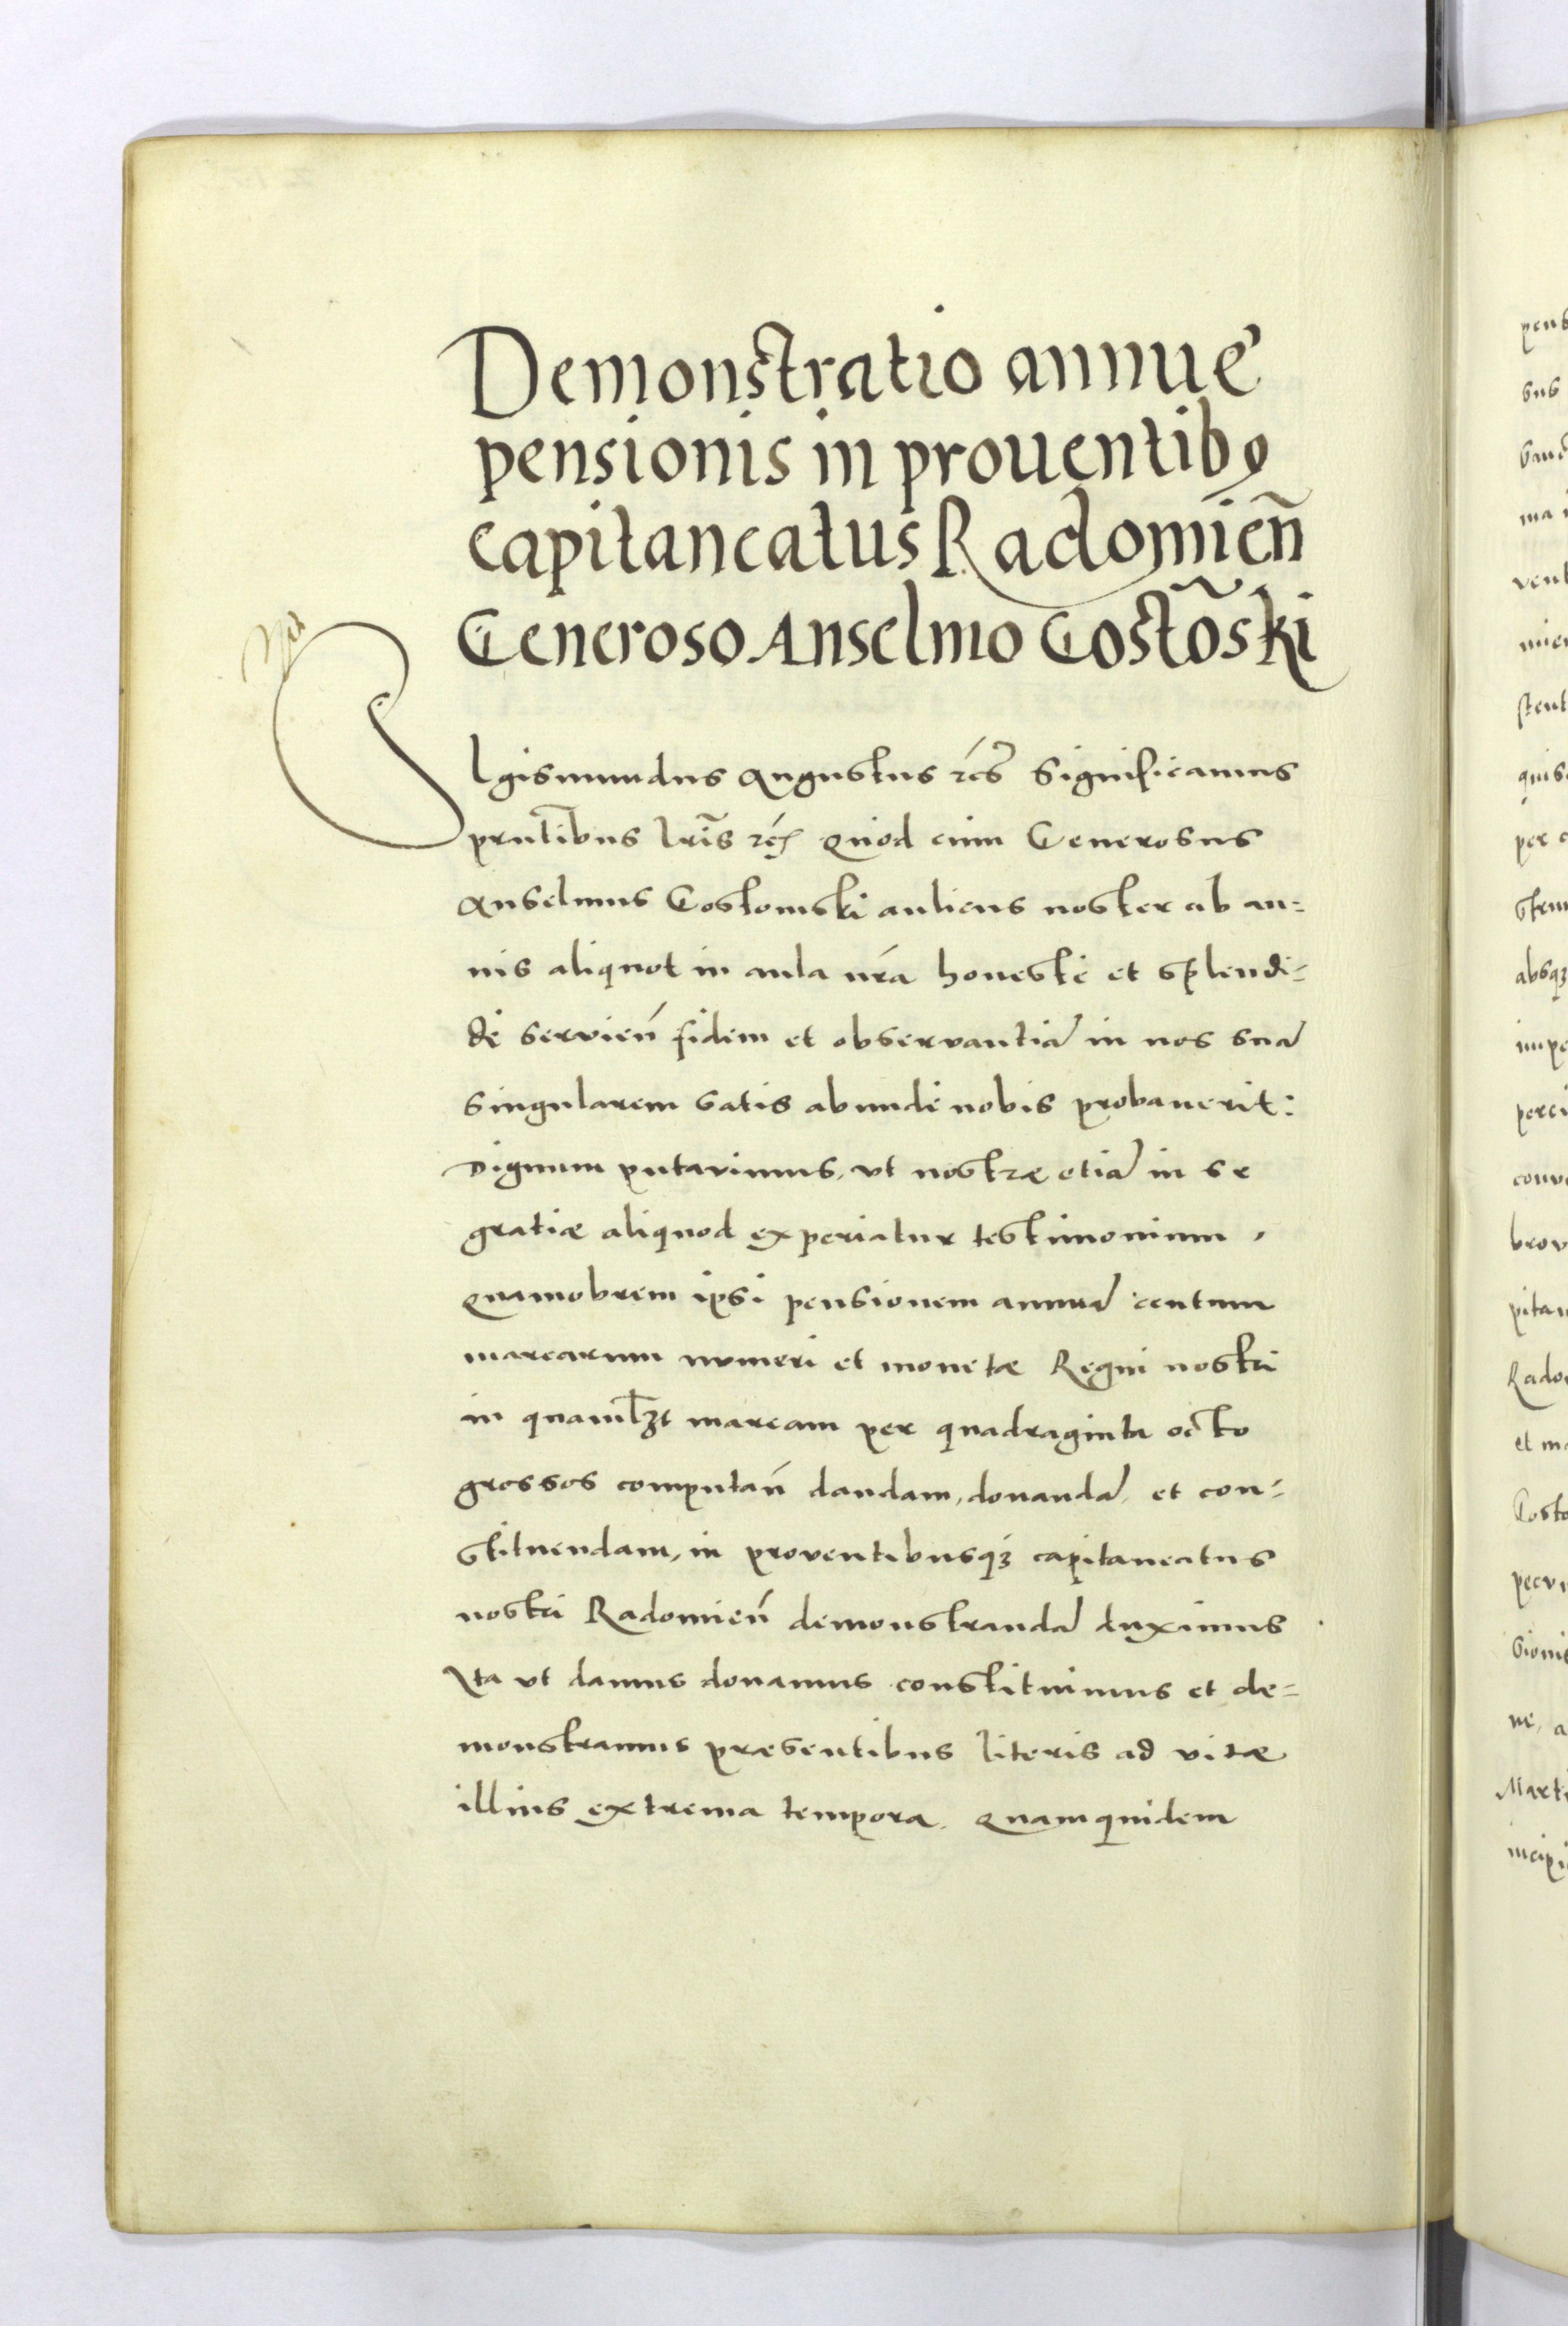 Demonstratio annuę
pensionis in prouentibꝯ
capitaneatus Radomien̄
Generoso Anselmo Gosto᷈ski
SIgismundus Augustus rc̄s Significamus
prn̄tibus lr̄is rc̄ꝭ Quod cum Generosus
Anselmus Gostomski aulicus noster ab an=
nis aliquot in aula nr̄a honeste et splendi=
de servien̄ fidem et observantiā in nos suā
singularem satis abunde nobis probauerit:
Dignum putavimus, vt nostræ etiā in se
gratiæ aliquod experiatur testimonium,
Quamobrem ipsi pensionem annuā centum
marcarum numeri et monetæ Regni nostri
in quaml̄ꝫt marcam per quadraginta octo
grossos computan̄ dandam, donandā, et con=
stituendam, in proventibusqꝫ capitaneatus
nostri Radomien̄ demonstrandā duximus
Ita vt damus donamus constituimus et de=
monstramus præsentibus literis ad vitæ
illius extrema tempora. Quamquidem